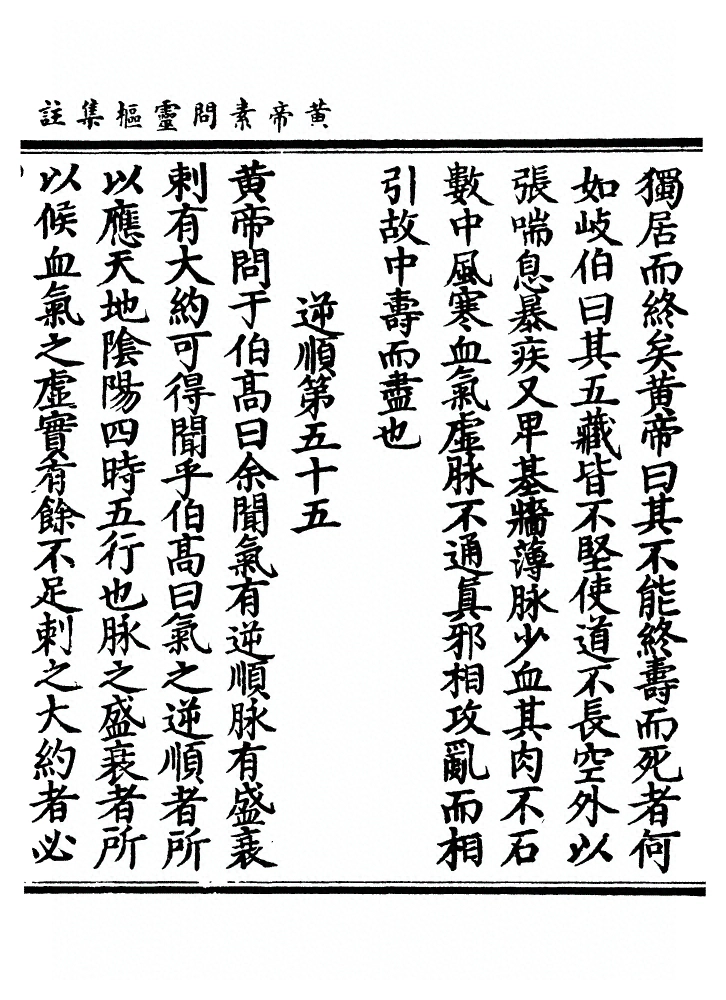 黃帝素問靈樞集註
獨居而終矣黃帝曰其不能終壽而死者何
如岐伯曰其五藏皆不堅使道不長空外以
張喘息暴疾又卑基牆薄脉少血其肉不石
數中風寒血氣虛脉不通眞邪相攻亂而相
引故中壽而盡也
逆順第五十五
黃帝問于伯高曰余聞氣有逆順脉有盛衰
刺有大約可得聞乎伯高曰氣之逆順者所
以應天地陰陽四時五行也脉之盛衰者所
以候血氣之虛實有餘不足刺之大約者必